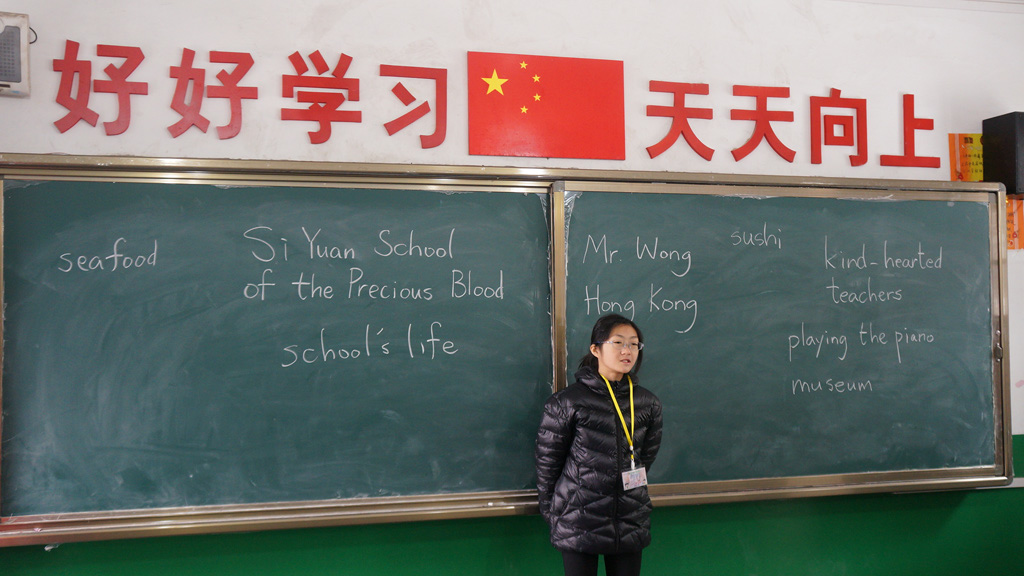 好好学习 天天向上
seafood
Si Yuan School
of the Precious Blood
school's life
Mr. Wong
Hong Kong
sushi
kind-hearted
teachers
playing the piano
museum